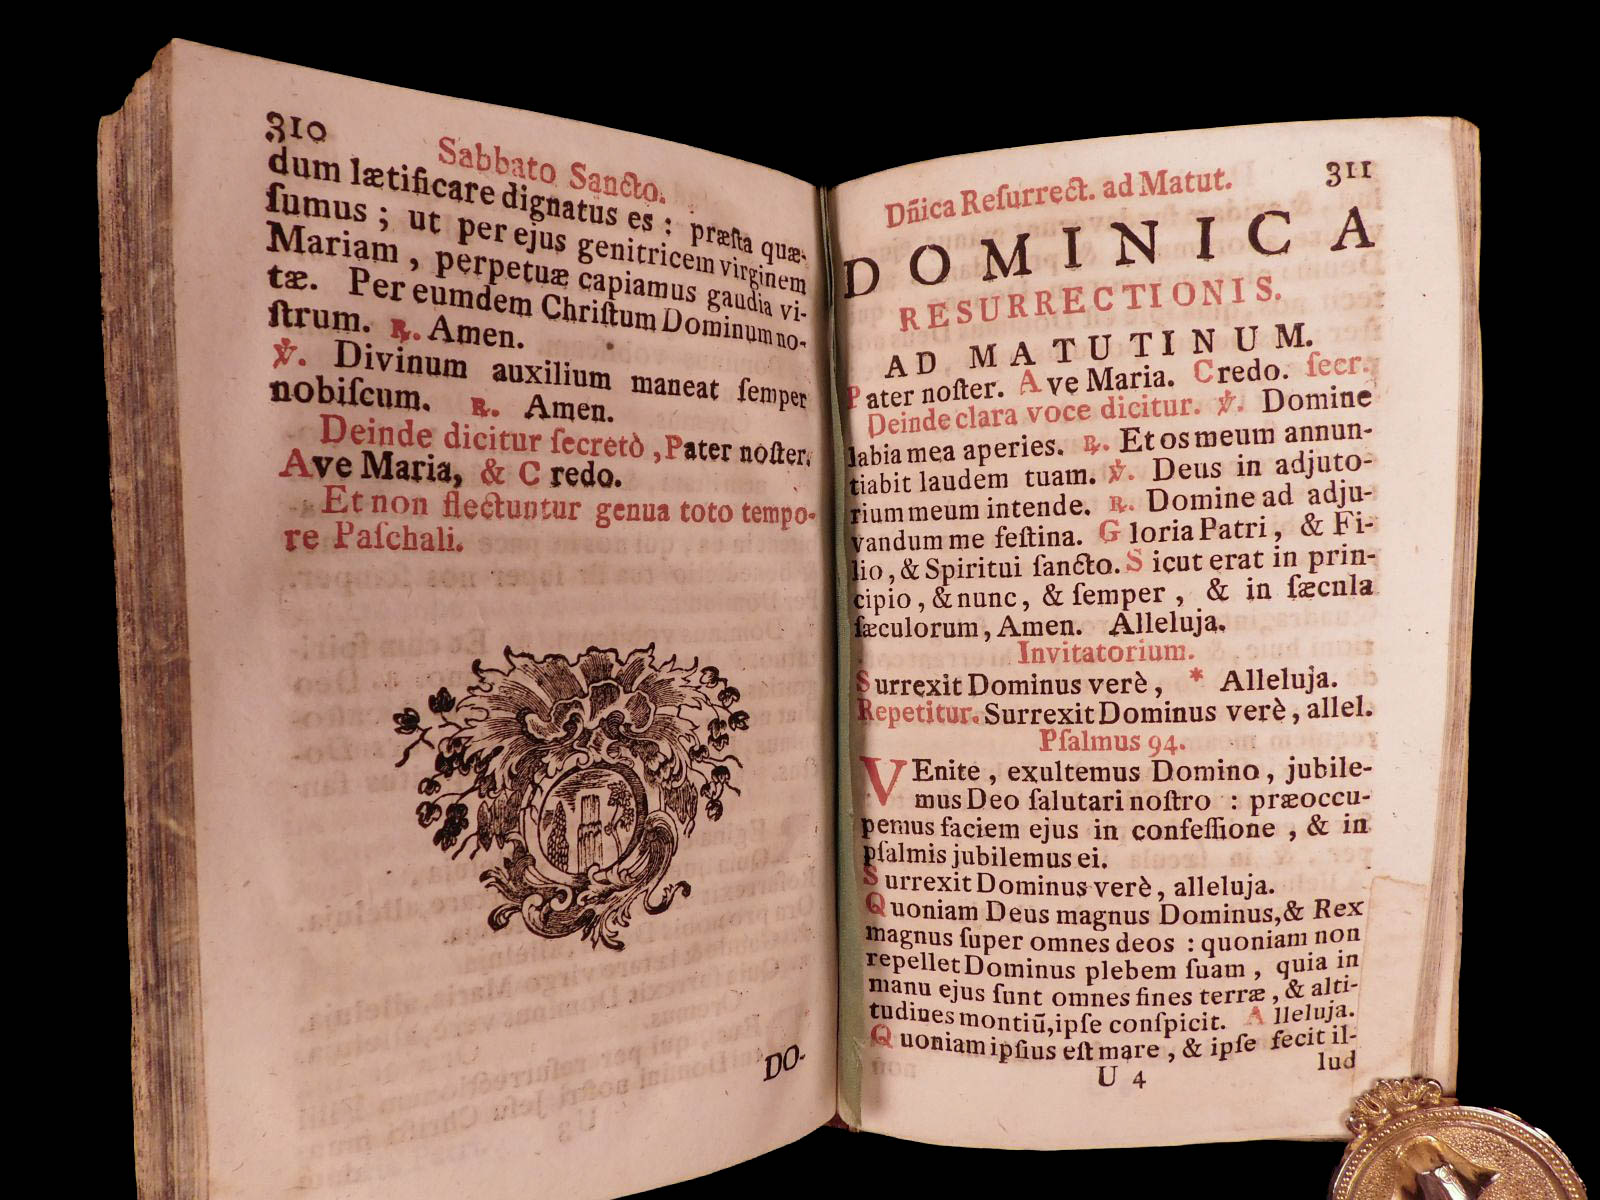 310
Sabbato Sancto.
dum lætificare dignatus es : præſta quæ-
ſumus ; ut per ejus genitricem virginem
Mariam , perpetuæ capiamus gaudia vi-
tæ. Per eumdem Chriſtum Dominum no-
ſtrum. ℟. Amen.
℣. Divinum auxilium maneat ſemper
nobiſcum. ℟. Amen.
Deinde dicitur ſecretò , Pater noſter.
Ave Maria, & Credo.
Et non flectuntur genua toto tempo-
re Paſchali.
DO-
Dñica Reſurrect. ad Matut.
311
DOMINICA
RESURRECTIONIS.
AD MATUTINUM.
Pater noſter. Ave Maria. Credo. ſecr.
Deinde clara voce dicitur. ℣. Domine
labia mea aperies. ℟. Et os meum annun-
tiabit laudem tuam. ℣. Deus in adjuto-
rium meum intende. ℟. Domine ad adju-
vandum me feſtina. Gloria Patri , & Fi-
lio, & Spiritui ſancto. Sicut erat in prin-
cipio , & nunc, & ſemper , & in ſæcula
ſæculorum, Amen. Alleluja.
Invitatorium.
Surrexit Dominus verè , * Alleluja.
Repetitur. Surrexit Dominus verè , allel.
Pſalmus 94.
VEnite , exultemus Domino , jubile-
mus Deo ſalutari noſtro : præoccu-
pemus faciem ejus in confeſſione , & in
pſalmis jubilemus ei.
Surrexit Dominus verè , alleluja.
Quoniam Deus magnus Dominus,& Rex
magnus ſuper omnes deos : quoniam non
repellet Dominus plebem ſuam , quia in
manu ejus ſunt omnes fines terræ , & alti-
tudines montiū,ipſe conſpicit. Alleluja.
Quoniam ipſius eſt mare , & ipſe fecit il-
U 4
lud